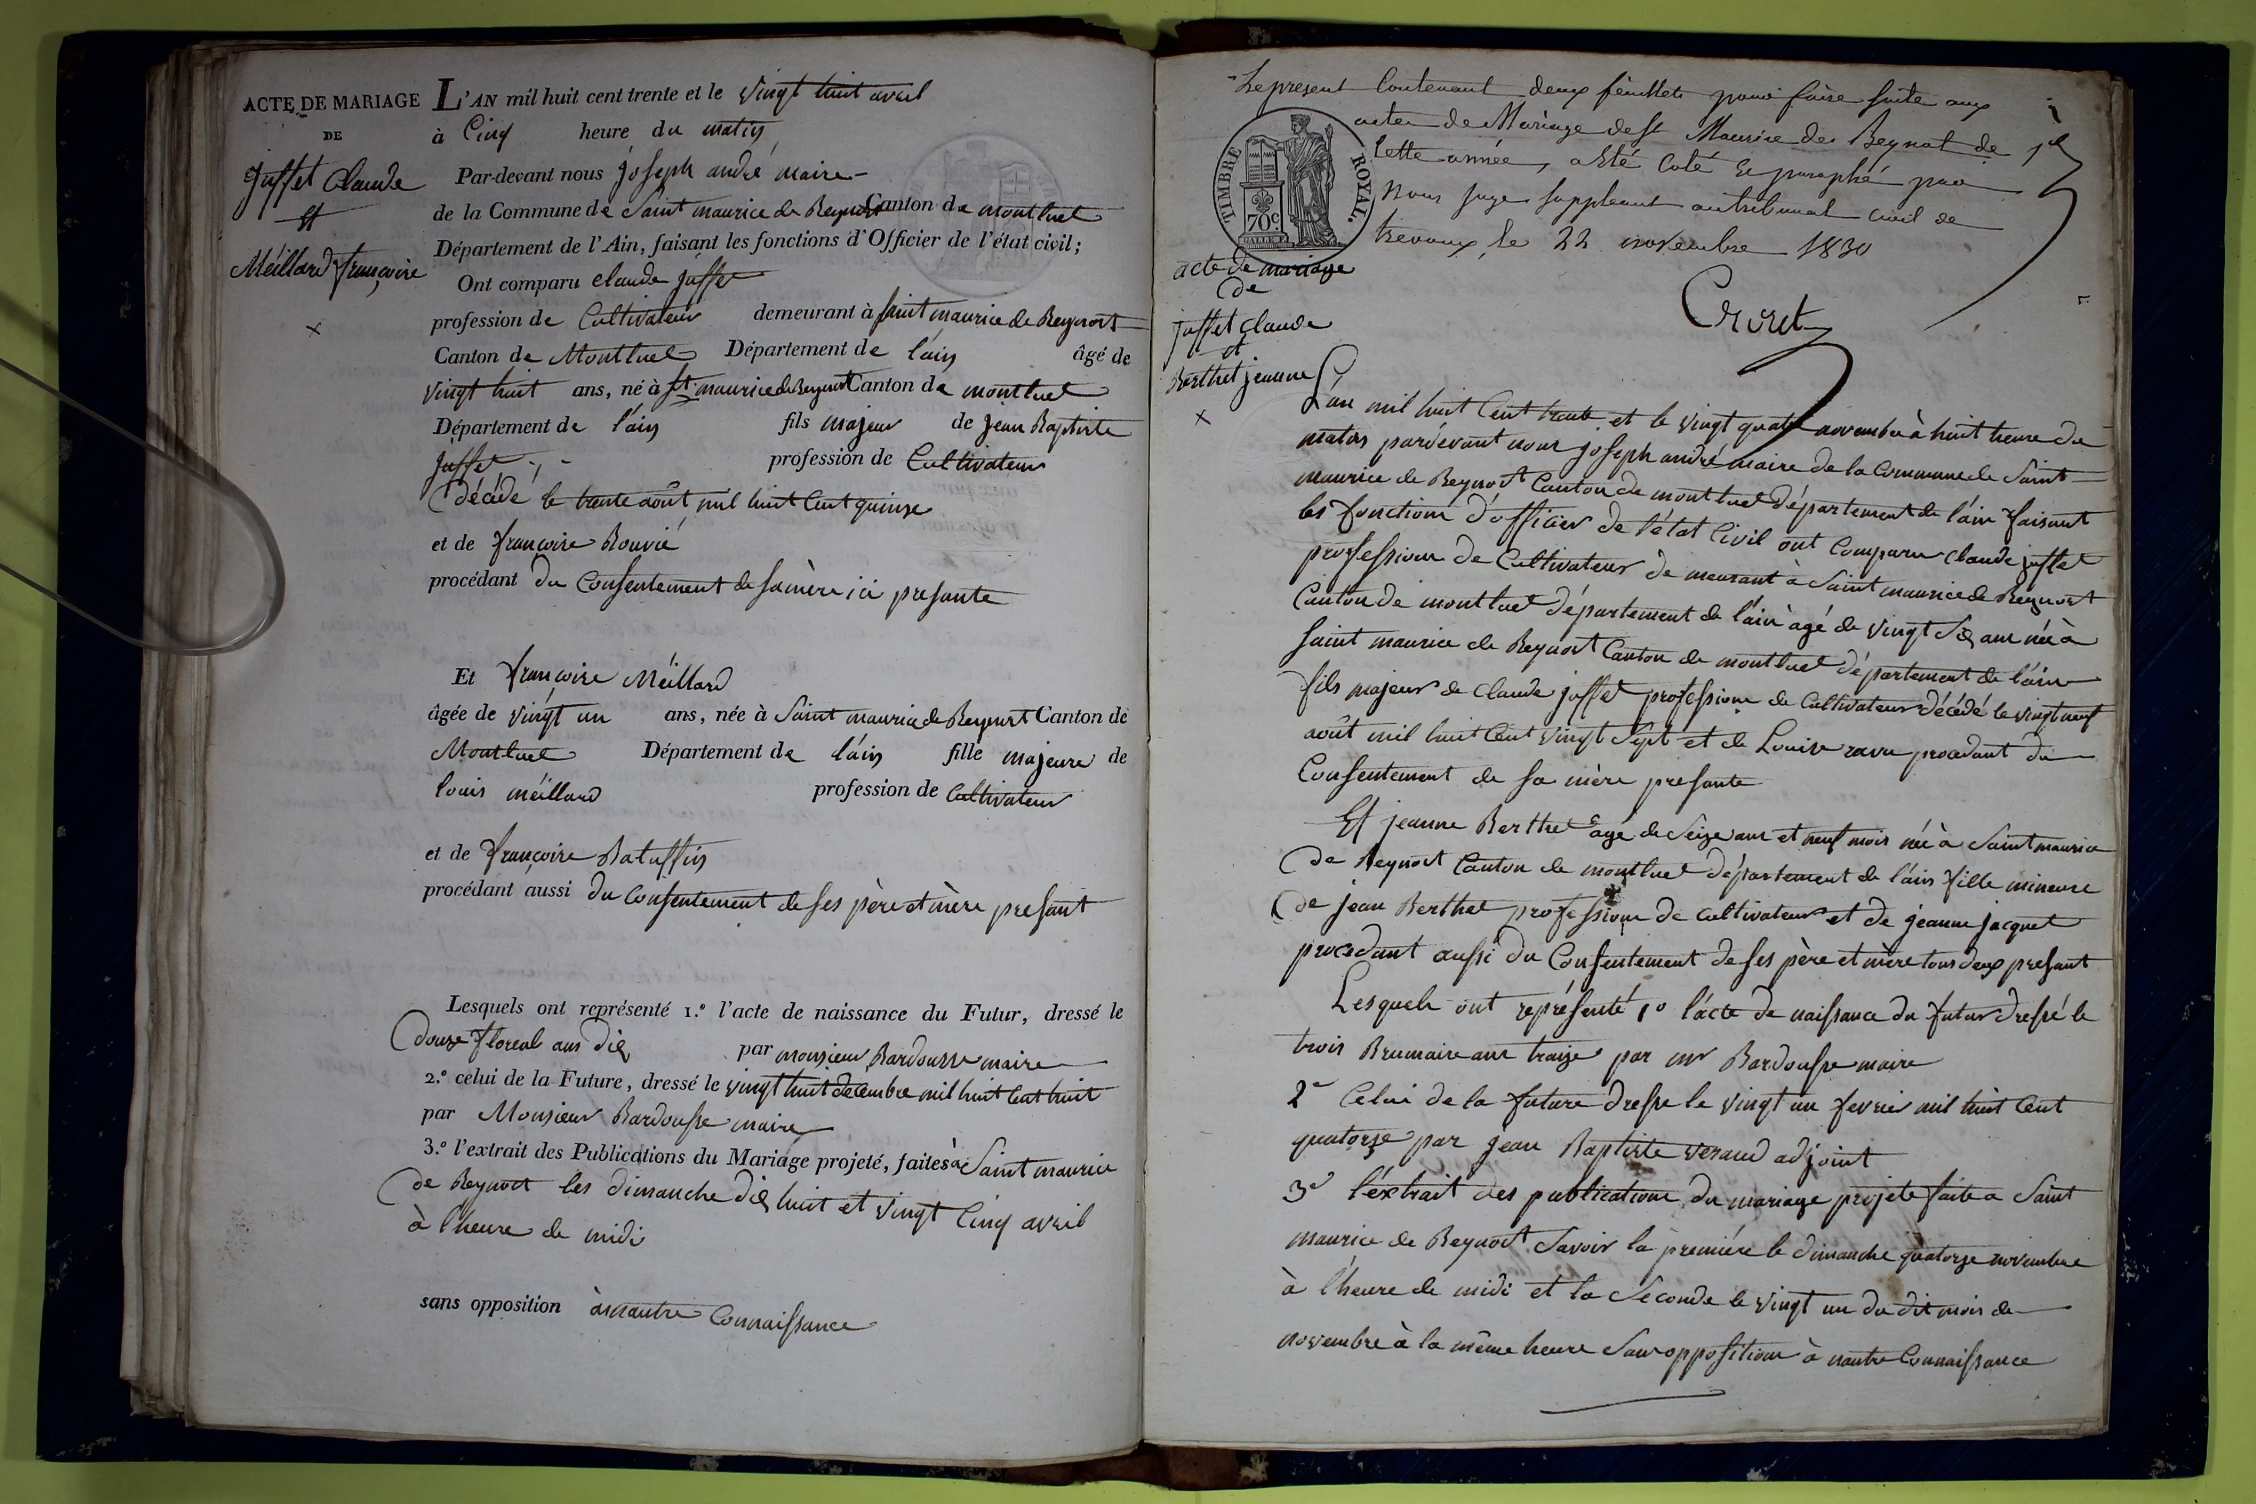 ACTE DE MARIAGE
DE
Juffet Claude
et
Méillard françoise
L'AN mil huit cent trente et le vingt huit avril
à Cinq heure du matin
Par-devant nous joseph andré maire
de la Commune de Saint maurice de Beynost Canton de montluel
Département de l'Ain, faisant les fonctions d'Officier de l'état civil;
Ont comparu claude juffet
profession de Cultivateur demeurant à saint maurice de Beynost
Canton de Montluel Département de l'áin âgé de
vingt huit ans, né à st maurice de Beynost Canton de montluel
Département de l'áin fils majeur de jean Baptiste
juffet profession de Cultivateur
décédé le trante août mil huit Cent quinze
et de françoise Rouvié
procédant du Consentement de sa mère ici presante
Et françoise Méillard
âgée de vingt un ans, née à Saint maurice de Beynost Canton de
Montluel Département de l'áin fille majeure de
louis méillard profession de Cultivateur
et de françoise Batuffin
procédant aussi du Consentement de ses père et mère presant
Lesquels ont représenté 1.º l'acte de naissance du Futur, dressé le
douze floreal ans dix par monsieur Bardousse maire
2.º celui de la Future, dressé le vingt huit decembre mil huit Cent huit
par Monsieur Bardousse maire
3.º l'extrait des Publications du Mariage projeté, faites à Saint maurice
de Beynost les dimanche dix huit et vingt Cinq avril
à l'heure de midi
sans opposition à nautre Connaissance
Le present Contenant deux feuillets pour faire suite aux
actes de Mariage de St Maurice de Beynost de
cette année, a été coté et paraphé par
nous juge suppleant au tribunal civil de
trevoux, le 22 novembre 1830
TIMBRE ROYAL.
70c.
acte de mariage
de
juffet claude
et
Berthet jeanne
L'an mil huit Cent trante et le vingt quatre novembre à huit heure du
matin pardevant nous joseph andré maire de la Commune de Saint
maurice de Beynost Canton de montluel département de l'áin faisant
les fonctions d'officier de l'état Civil ont Comparu Claude juffet
profession de Cultivateur demeurant à Saint maurice de Beynost
Canton de montluel département de l'áin âgé de vingt six ans née à
Saint maurice de Beynost Canton de montluel département de l'áin
fils majeur de Claude juffet profession de Cultivateur décédé le vingt neuf
août mil huit Cent vingt sept et de Louise ravu procedant du
Consentement de sa mère presante
Et jeanne Berthet agé de Seize ans et neuf mois née à Saint maurice
de Beynost Canton de montluel département de l'áin fille mineure
de jean Berthet profession de cultivateur et de jeanne jacquet
procedant aussi du Consentement de ses père et mère tous deux presant
Lesquels ont représenté 1º l'ácte de naissance du futur dressé le
trois Brumaire ans traize par mr Bardousse maire
2º Celui de la future dresse le vingt un fevrier mil huit Cent
quatorze par jean Baptiste veraud adjoint
3º l'éxtrait des publications du mariage projeté faite a Saint
maurice de Beynost Savoir la première le dimanche quatorze novembre
à l'heure de midi et la Seconde le vingt un du dit mois de
novembre à la même heure Sans opposition à nautre Connaissance